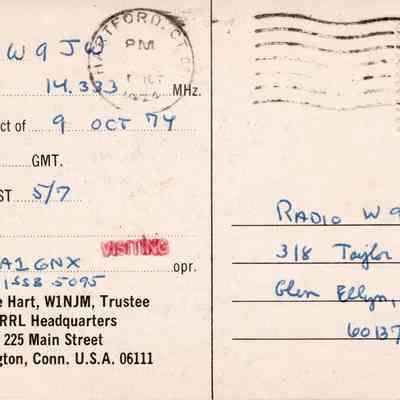 HARTFORD, CT
PM
OCT
1974
W9JW
14.333 MHz.
ct of 9 OCT 74
GMT.
ST 5/7
VISITING
A1GNX opr.
1558 5095
e Hart, W1NJM, Trustee
RRL Headquarters
225 Main Street
gton, Conn. U.S.A. 06111
RADIO W9
318 Taylor
Glen Ellyn,
60137